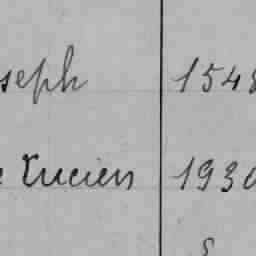 seph 1548
e Lucien 1930